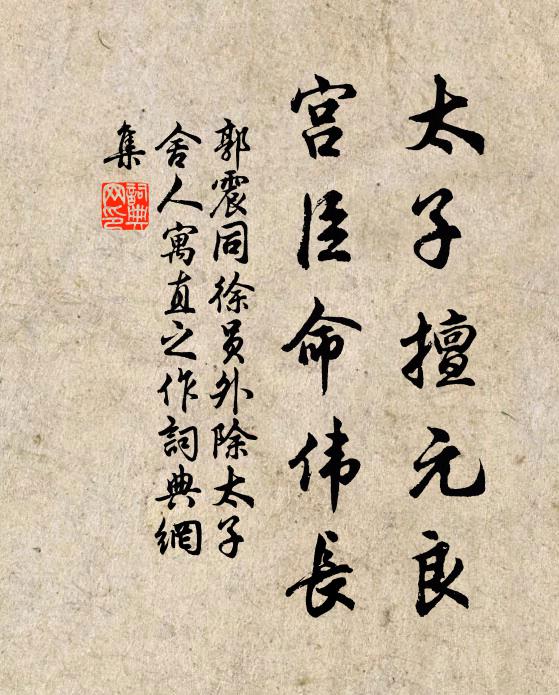 太子擅元良
宫臣命伟長
郭震同徐员外除太子
舍人寓直之作詞典網
集
詞典
网印